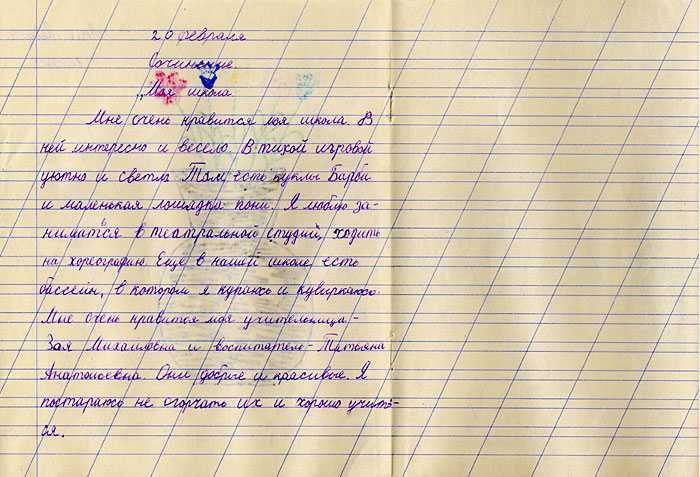 20 февраля
Сочинение.
"Моя школа
Мне очень нравится моя школа. В
ней интересно и весело. В тихой игровой
уютно и светло Там есть куклы Барби
и маленькая лошадка пони. Я люблю за-
ниматься в театральной студии, ходить
на хореографию. Ещё в нашей школе есть
бассейн, в котором я купаюсь и кувыркаюсь.
Мне очень нравится моя учительница -
Зоя Михайловна и воспитатель - Татьяна
Анатольевна. Они добрые и красивые. Я
постараюсь не огорчать их и хорошо учить-
ся.